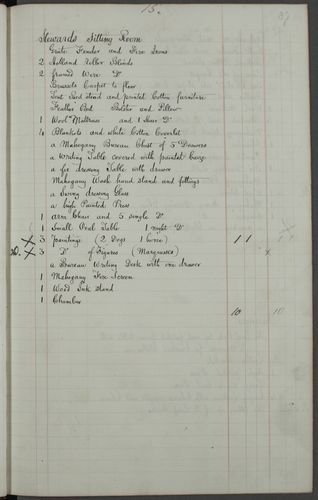 15.
37
Stewards Sitting Room
Grate Fender and Fire Irons
2 Holland Roller Blinds
2 framed Wire Do
Brussels Carpet to floor
Tent Bed stead and printed Cotton furniture
Feather Bed Bolster and Pillow
1 Wool Mattress and 1 Straw Do
4 Blankets and white Cotton Coverlet
a Mahogany Bureau Chest of 5 Drawers
a Writing Table covered with painted
a fir dressing Table with drawer
Mahogany Wash hand stand and fittings
a Swing dressing Glass
a high Painted Press
1 arm Chair and 5 single Do
1 Small Oval Table 1 night Do
X 3 Paintings (2 Dogs 1 horse) 11
X 3 Do of Figures
a Bureau Writing Desk with one drawer
1 Mahogany Fire Screen
1 Wood Ink stand
1 Chamber
10 10